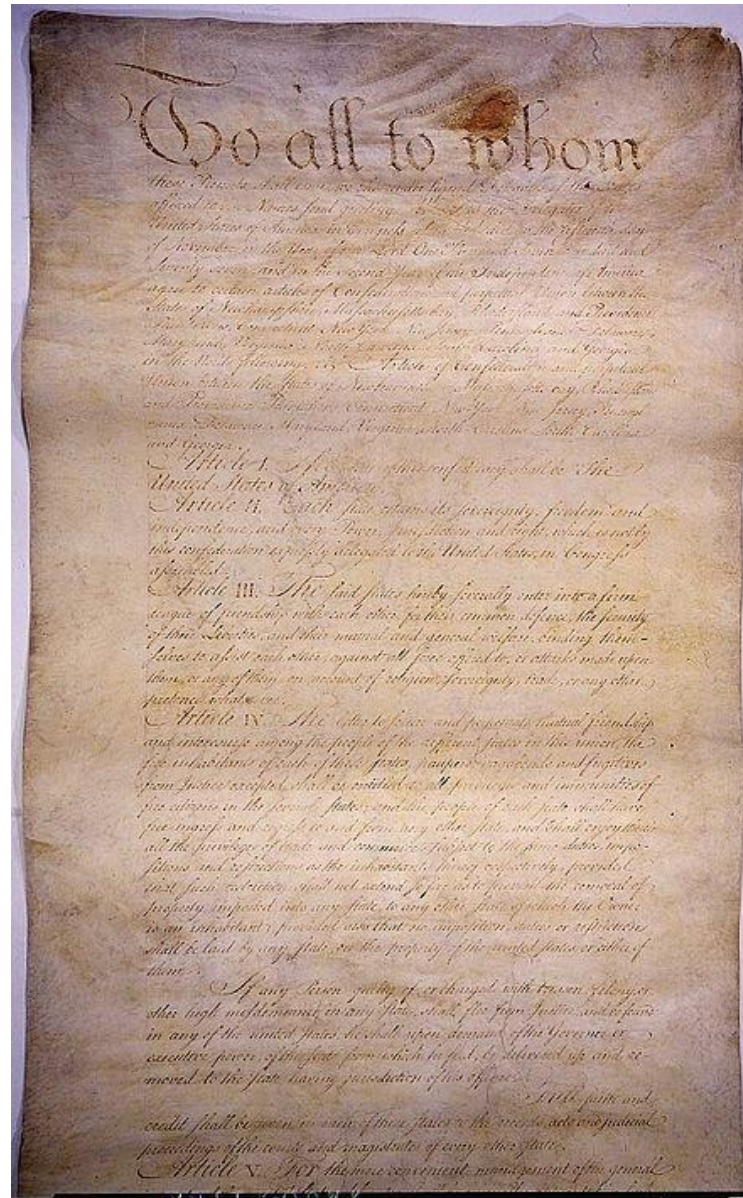 To all to whom
these Presents shall come, we the under signed Delegates of the States
affixed to our Names send greeting. Whereas the Delegates of the
United States of America in Congress assembled did on the fifteenth day
of November in the Year of our Lord One Thousand Seven Hundred and
Seventy seven, and in the Second Year of the Independence of America
agree to certain articles of Confederation and perpetual Union between the
States of Newhampshire, Massachusetts-bay, Rhodeisland and Providence
Plantations, Connecticut, New York, New Jersey, Pennsylvania, Delaware,
Maryland, Virginia, North-Carolina, South-Carolina, and Georgia
in the Words following, viz. Articles of Confederation and perpetual
Union between the States of Newhampshire, Massachusetts-bay, Rhodeisland
and Providence Plantations, Connecticut, New-York, New-Jersey, Pennsyl-
vania, Delaware, Maryland, Virginia, North-Carolina, South-Carolina
and Georgia.
Article I. The Stile of this confederacy shall be "The
United States of America."
Article II. Each state retains its sovereignty, freedom and
independence, and every Power, Jurisdiction and right, which is not by
this confederation expressly delegated to the United States, in Congress
assembled.
Article III. The said states hereby severally enter into a firm
league of friendship with each other, for their common defence, the security
of their Liberties, and their mutual and general welfare, binding them-
selves to assist each other, against all force offered to, or attacks made upon
them, or any of them, on account of religion, sovereignty, trade, or any other
pretence whatever.
Article IV. The better to secure and perpetuate mutual friendship
and intercourse among the people of the different states in this union, the
free inhabitants of each of these states, paupers, vagabonds and fugitives
from Justice excepted, shall be entitled to all privileges and immunities of
free citizens in the several states; and the people of each state shall have
free ingress and regress to and from any other state, and shall enjoy therein
all the privileges of trade and commerce, subject to the same duties, impo-
sitions and restrictions as the inhabitants thereof respectively, provided
that such restriction shall not extend so far as to prevent the removal of
property imported into any state, to any other state of which the Owner
is an inhabitant; provided also that no imposition, duties or restriction
shall be laid by any state, on the property of the united states, or either of
them.
If any Person guilty of, or charged with treason, felony, or
other high misdemeanor in any state, shall flee from Justice, and be found
in any of the united states, he shall upon demand of the Governor or
executive power, of the state from which he fled, be delivered up and re-
moved to the state having jurisdiction of his offence.
Full faith and
credit shall be given in each of these states to the records, acts and judicial
proceedings of the courts and magistrates of every other state.
Article V. For the more convenient management of the general